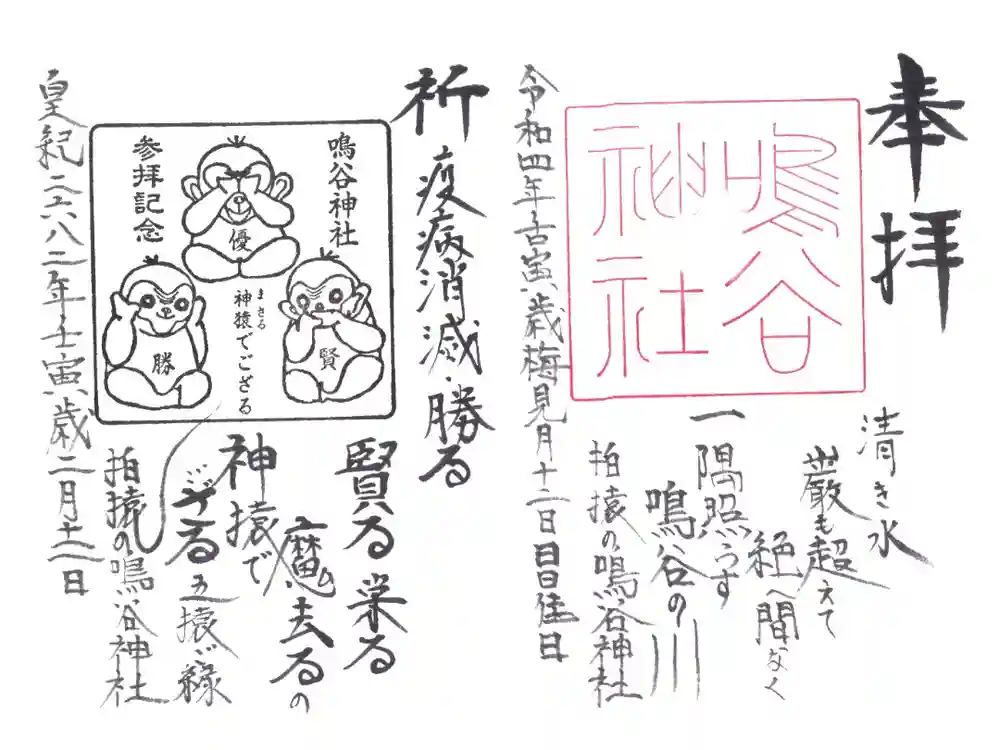 奉拝
鳴谷
神社
清き水
巌も超えて
絶へ間なく
一隅照らす
鳴谷の川
拍猿の鳴谷神社
令和四年壬寅歳梅見月十二日昌佳日
祈
疫病消滅・勝る
賢る 栄る
魔去るの
神猿で
ござる
五猿ご縁
拍猿の鳴谷神社
鳴谷神社
参拝記念
優
勝
賢
まさる
神猿でござる
皇紀二六八二年壬寅歳二月十二日